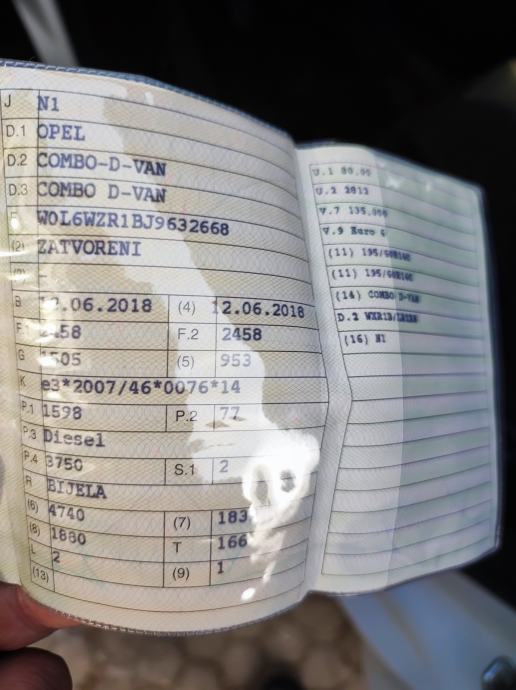 J N1
D.1 OPEL
D.2 COMBO-D-VAN
D.3 COMBO D-VAN
E W0L6WZR1BJ9632668
(2) ZATVORENI
(3) -
B 12.06.2018 (4) 12.06.2018
F.1 2458 F.2 2458
G 1505 (5) 953
K e3*2007/46*0076*14
P.1 1598 P.2 77
P.3 Diesel
P.4 3750 S.1 2
R BIJELA
(6) 4740 (7) 183
(8) 1880 T 166
L 2 (9) 1
(13)
U.1 80.00
U.2 2812
V.7 135.000
V.9 Euro 6
(11) 195/60R16C
(11) 195/60R16C
(14) COMBO D-VAN
D.2
(16) N1